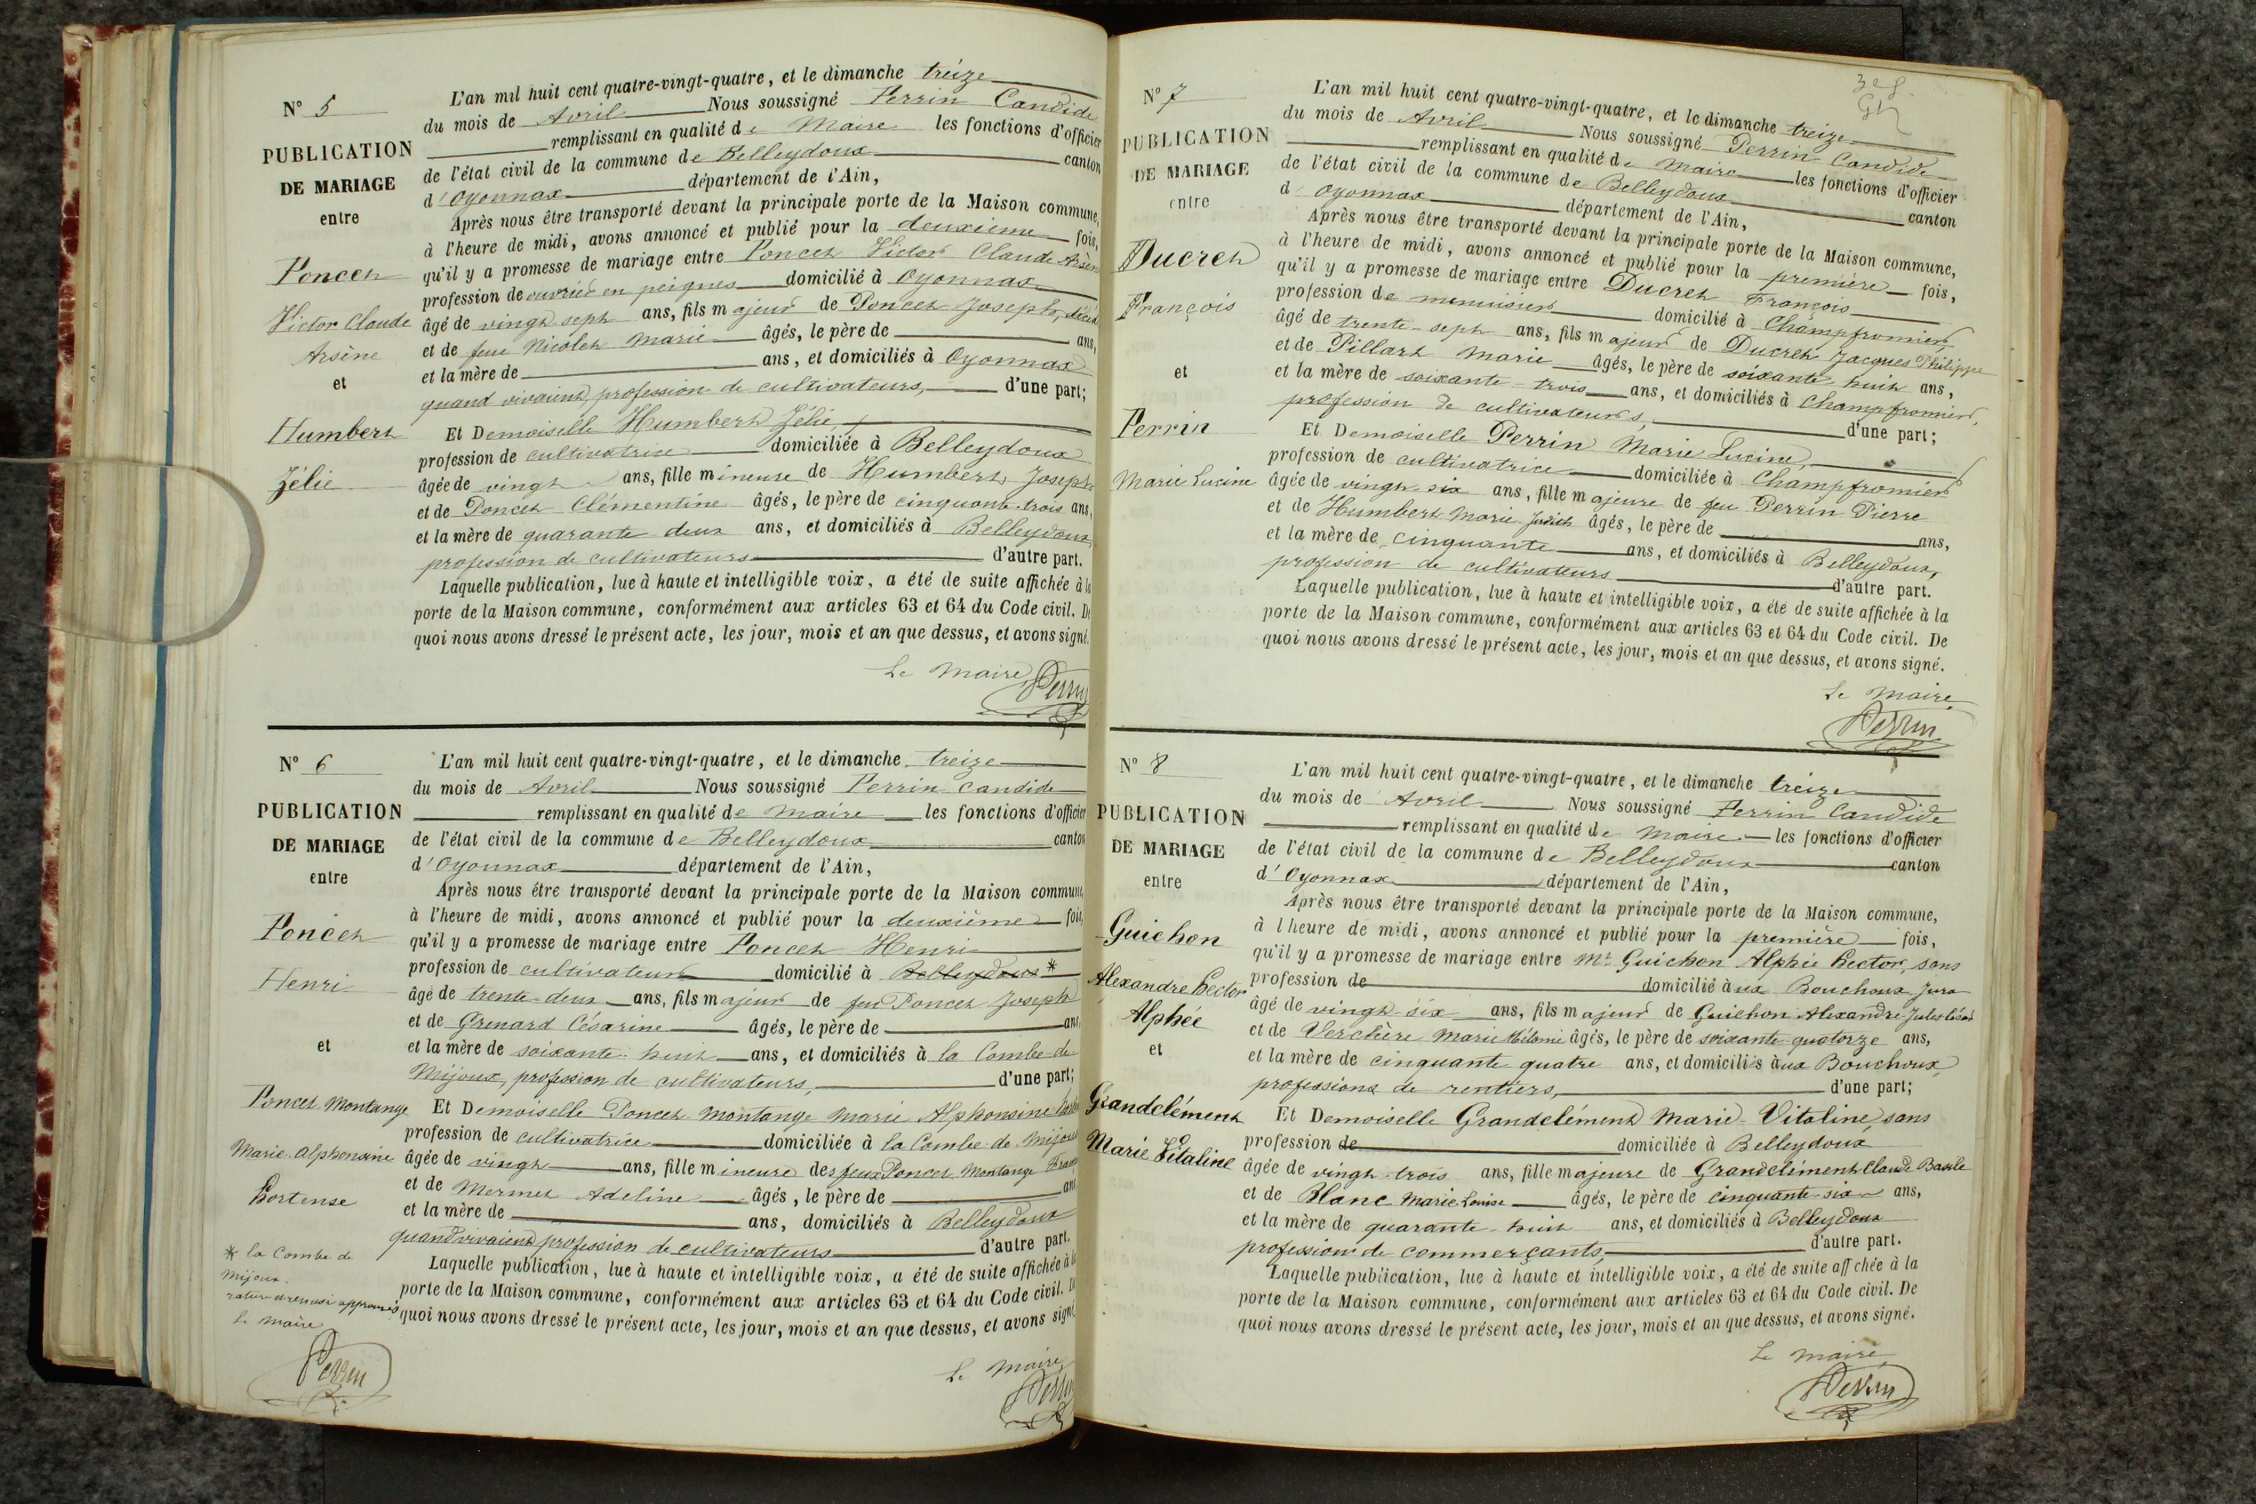 N° 5
PUBLICATION
DE MARIAGE
entre
Poncet
Victor Claude
Arsène
et
Humbert
Zélie
L'an mil huit cent quatre-vingt-quatre, et le dimanche treize
du mois de Avril Nous soussigné Perrin Candide
remplissant en qualité de Maire les fonctions d'officier
de l'état civil de la commune de Belleydoux canton
d'Oyonnax département de l'Ain,
Après nous être transporté devant la principale porte de la Maison commune,
à l'heure de midi, avons annoncé et publié pour la deuxième fois,
qu'il y a promesse de mariage entre Poncet Victor Claude Arsène
profession de ouvrier en peignes domicilié à Oyonnax
âgé de vingt sept ans, fils majeur de Poncet Joseph,
et de feue Nicolet Marie âgés, le père de ans,
et la mère de ans, et domiciliés à Oyonnax
quand vivaient, profession de cultivateurs, d'une part;
Et Demoiselle Humbert Zélie,
profession de cultivatrice domiciliée à Belleydoux
âgée de vingt ans, fille mineure de Humbert Joseph
et de Poncet Clémentine âgés, le père de cinquante-trois ans,
et la mère de quarante deux ans, et domiciliés à Belleydoux,
profession de cultivateurs d'autre part.
Laquelle publication, lue à haute et intelligible voix, a été de suite affichée à la
porte de la Maison commune, conformément aux articles 63 et 64 du Code civil. De
quoi nous avons dressé le présent acte, les jour, mois et an que dessus, et avons signé.
Le Maire,
Perrin
N° 6
PUBLICATION
DE MARIAGE
entre
Poncet
Henri
et
Poncet Montange
Marie-Alphonsine
Hortense
* la Combe de
Mijoux.
rature et renvoi approuvés
Le Maire
Perrin
L'an mil huit cent quatre-vingt-quatre, et le dimanche treize
du mois de Avril Nous soussigné Perrin Candide
remplissant en qualité de Maire les fonctions d'officier
de l'état civil de la commune de Belleydoux canton
d'Oyonnax département de l'Ain,
Après nous être transporté devant la principale porte de la Maison commune,
à l'heure de midi, avons annoncé et publié pour la deuxième fois,
qu'il y a promesse de mariage entre Poncet Henri
profession de cultivateur domicilié à Belleydoux *
âgé de trente-deux ans, fils majeur de feu Poncet Joseph
et de Grenard Césarine âgés, le père de ans,
et la mère de soixante-huit ans, et domiciliés à la Combe de
Mijoux, profession de cultivateurs, d'une part;
Et Demoiselle Poncet Montange Marie Alphonsine
profession de cultivatrice domiciliée à la Combe de Mijoux
âgée de vingt ans, fille mineure des feux Poncet Montange
et de Mermet Adeline âgés, le père de ans
et la mère de ans, domiciliés à Belleydoux
quand vivaient profession de cultivateurs d'autre part.
Laquelle publication, lue à haute et intelligible voix, a été de suite affichée à la
porte de la Maison commune, conformément aux articles 63 et 64 du Code civil. De
quoi nous avons dressé le présent acte, les jour, mois et an que dessus, et avons signé.
Le Maire,
Perrin
N° 7
PUBLICATION
DE MARIAGE
entre
Ducret
François
et
Perrin
Marie Lucine
L'an mil huit cent quatre-vingt-quatre, et le dimanche treize
du mois de Avril Nous soussigné Perrin Candide
remplissant en qualité de Maire les fonctions d'officier
de l'état civil de la commune de Belleydoux canton
d'Oyonnax département de l'Ain,
Après nous être transporté devant la principale porte de la Maison commune,
à l'heure de midi, avons annoncé et publié pour la première fois,
qu'il y a promesse de mariage entre Ducret François
profession de menuisier domicilié à Champfromier
âgé de trente-sept ans, fils majeur de Ducret Jacques Philippe
et de Pillard Marie âgés, le père de soixante-huit ans,
et la mère de soixante-trois ans, et domiciliés à Champfromier,
profession de cultivateurs, d'une part;
Et Demoiselle Perrin Marie Lucine,
profession de cultivatrice domiciliée à Champfromier
âgée de vingt six ans, fille majeure de feu Perrin Pierre
et de Humbert Marie Judith âgés, le père de ans,
et la mère de cinquante ans, et domiciliés à Belleydoux,
profession de cultivateurs d'autre part.
Laquelle publication, lue à haute et intelligible voix, a été de suite affichée à la
porte de la Maison commune, conformément aux articles 63 et 64 du Code civil. De
quoi nous avons dressé le présent acte, les jour, mois et an que dessus, et avons signé.
Le Maire,
Perrin
N° 8
PUBLICATION
DE MARIAGE
entre
Guichon
Alexandre Hector
Alphée
et
Grandclément
Marie Vitaline
L'an mil huit cent quatre-vingt-quatre, et le dimanche treize
du mois de Avril Nous soussigné Perrin Candide
remplissant en qualité de Maire les fonctions d'officier
de l'état civil de la commune de Belleydoux canton
d'Oyonnax département de l'Ain,
Après nous être transporté devant la principale porte de la Maison commune,
à l'heure de midi, avons annoncé et publié pour la première fois,
qu'il y a promesse de mariage entre Mr Guichon Alphée Hector, sans
profession de domicilié aux Bouchoux Jura
âgé de vingt-six ans, fils majeur de Guichon Alexandre Jules César
et de Verchère Marie Mélanie âgés, le père de soixante-quatorze ans,
et la mère de cinquante quatre ans, et domiciliés aux Bouchoux,
professions de rentiers, d'une part;
Et Demoiselle Grandclément Marie-Vitaline, sans
profession de domiciliée à Belleydoux
âgée de vingt-trois ans, fille majeure de Grandclément Claude Basile
et de Blanc Marie Louise âgés, le père de cinquante-six ans,
et la mère de quarante-huit ans, et domiciliés à Belleydoux
profession de commerçants, d'autre part.
Laquelle publication, lue à haute et intelligible voix, a été de suite affichée à la
porte de la Maison commune, conformément aux articles 63 et 64 du Code civil. De
quoi nous avons dressé le présent acte, les jour, mois et an que dessus, et avons signé.
Le Maire,
Perrin